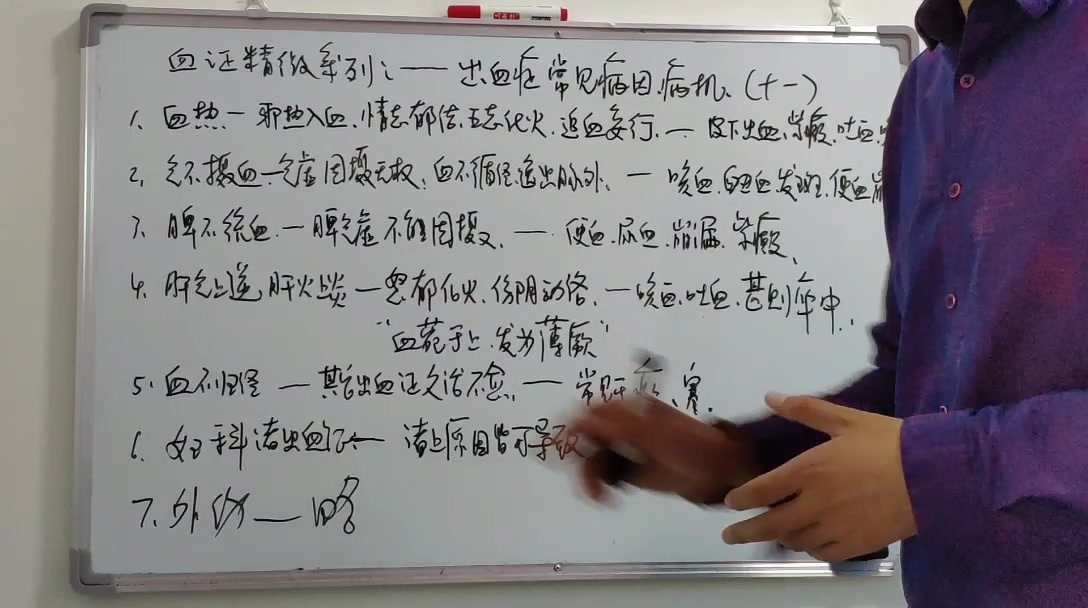 血证精微系列之——出血症常见病因.病机.(十一)
1. 血热一邪热入血.情志郁结.五志化火.迫血妄行.一皮下出血.紫癜.吐血.
2. 气不摄血一气虚固摄无权.血不循经溢出脉外.一咳血.衄血.发斑.便血.
3. 脾不统血.一脾气虚不能固摄.一便血.尿血.崩漏.紫癜.
4. 肝气上逆.肝火上炎一忽郁化火.伤阴动络.一咳血.吐血.甚则卒中.
"血菀于上.发为薄厥"
5. 血不归经一其它出血证久治不愈.一常见于瘀、寒.
6. 妇科诸出血证一诸上原因皆可导致
7. 外伤一略